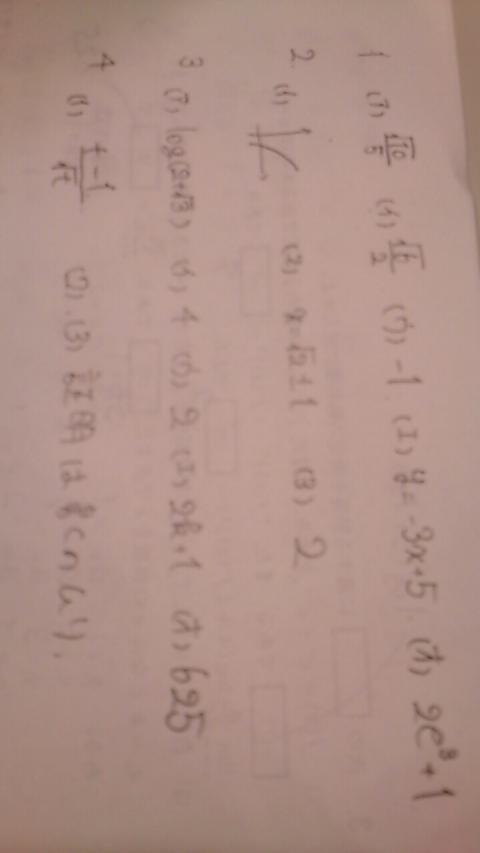 1 (ア) √10/5 (イ) √6/2 (ウ) -1 (エ) y=-3x+5 (オ) 2e³+1
2 (1) (2) x=√2±1 (3) 2
3 (ア) log(2+√3) (イ) 4 (ウ) 2 (エ) 2k+1 (オ) 625
4 (1) (2), (3) 証明は